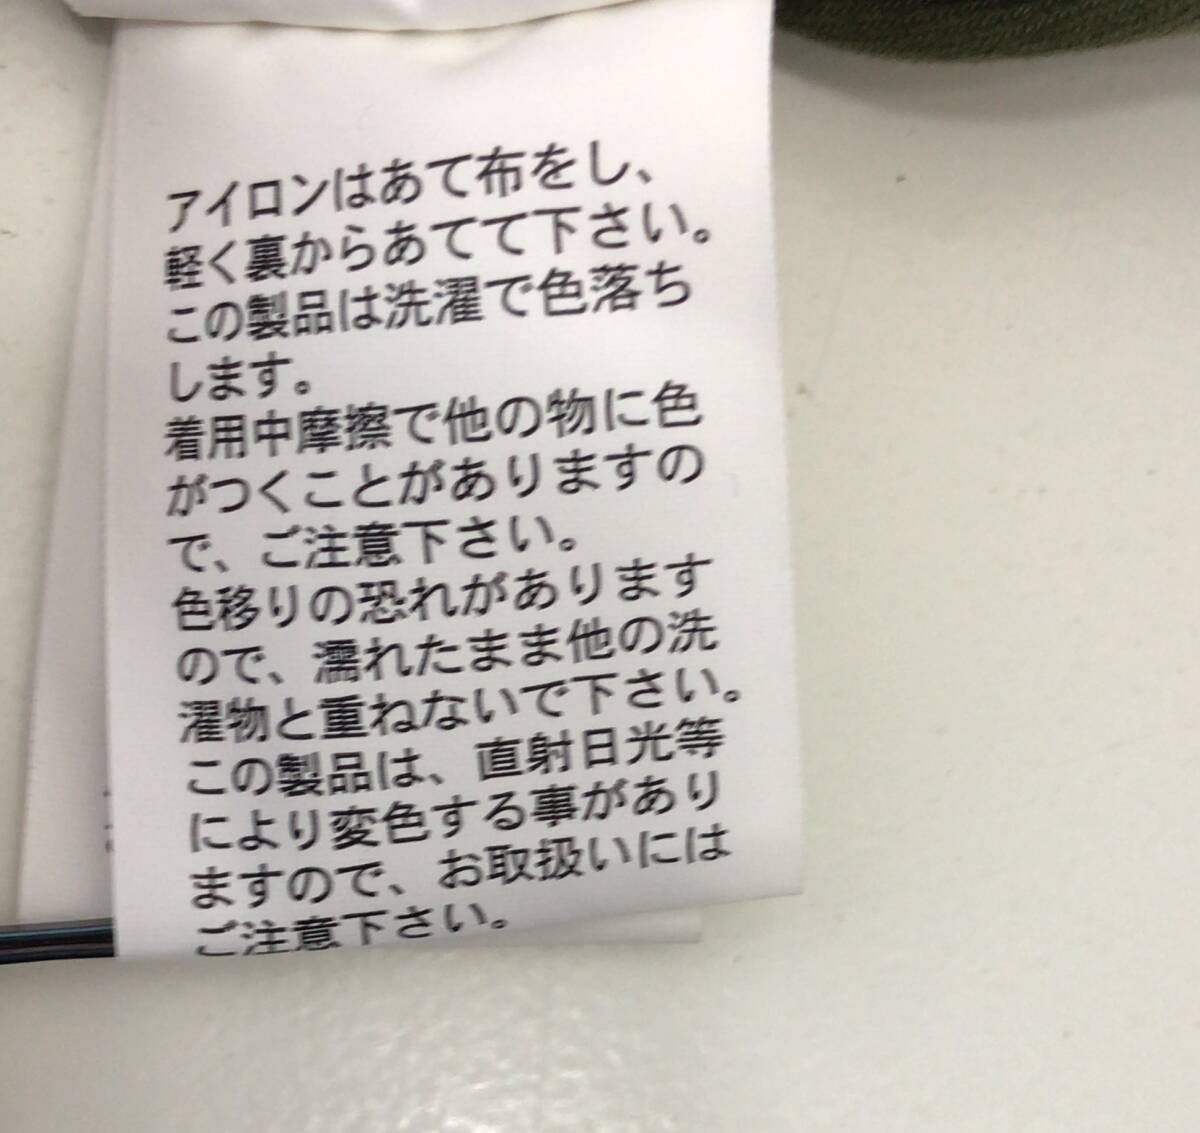 アイロンはあて布をし、
軽く裏からあてて下さい。
この製品は洗濯で色落ち
します。
着用中摩擦で他の物に色
がつくことがありますの
で、ご注意下さい。
色移りの恐れがあります
ので、濡れたまま他の洗
濯物と重ねないで下さい。
この製品は、直射日光等
により変色する事があり
ますので、お取扱いには
ご注意下さい。